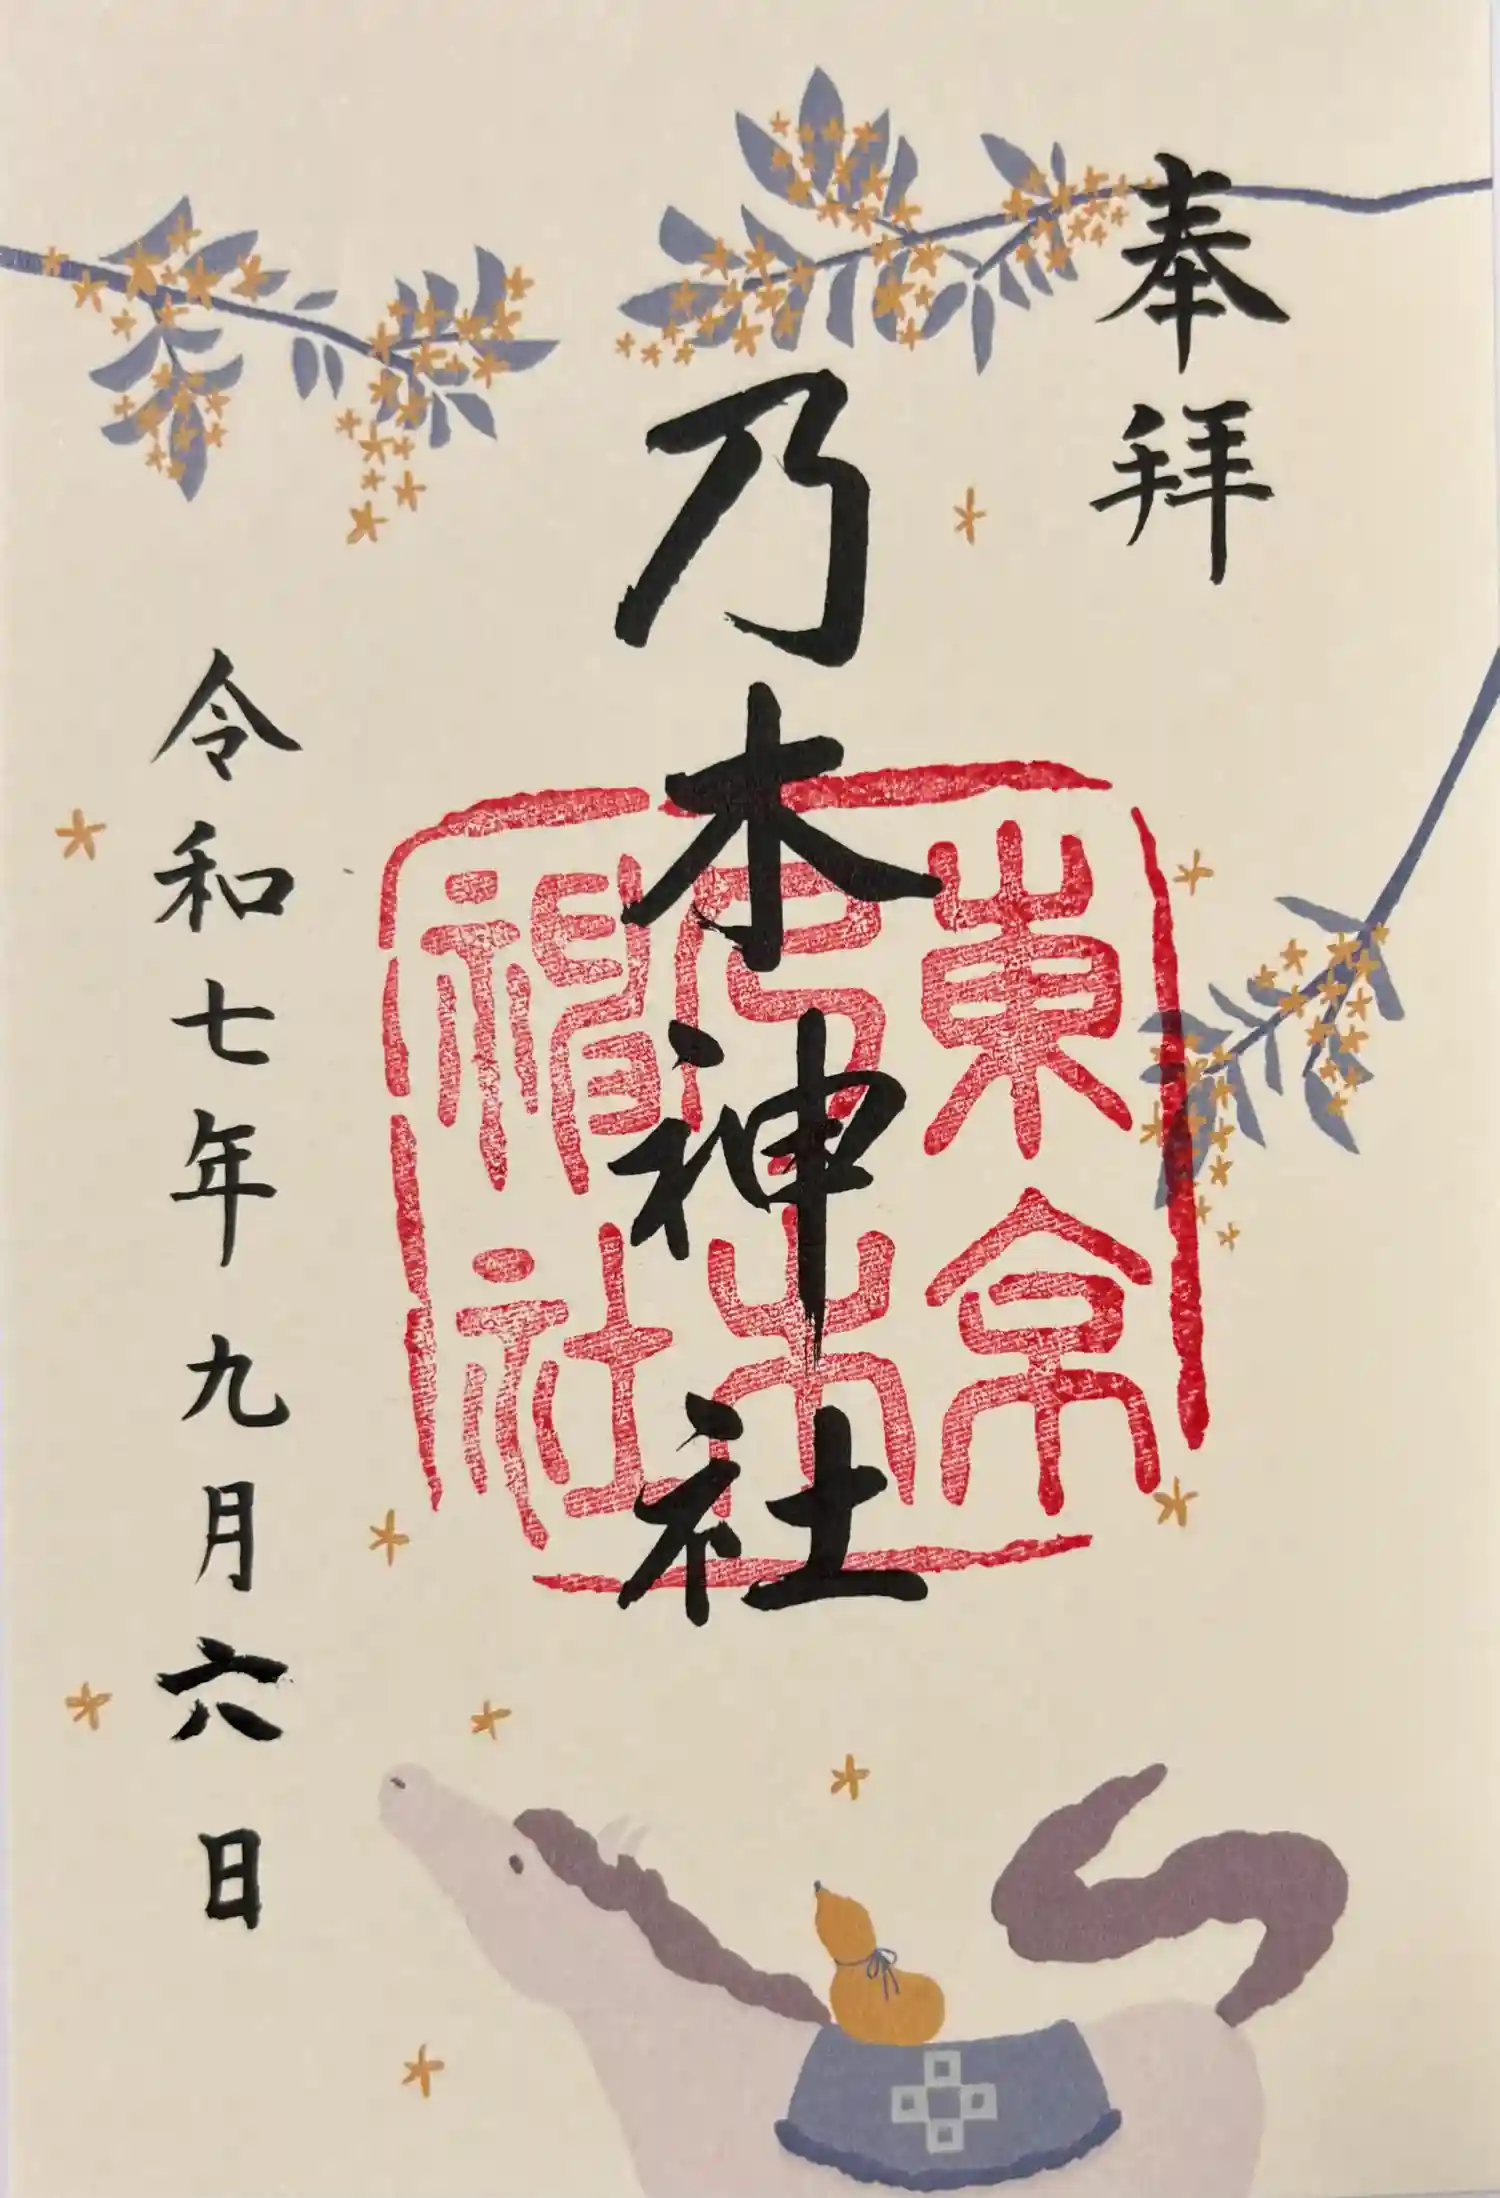 奉拝
乃木神社
東京
乃木
神社
令和七年九月六日